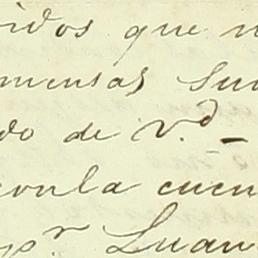 idos que n
mensas su
do de V.d _
con la cuen
por Luan